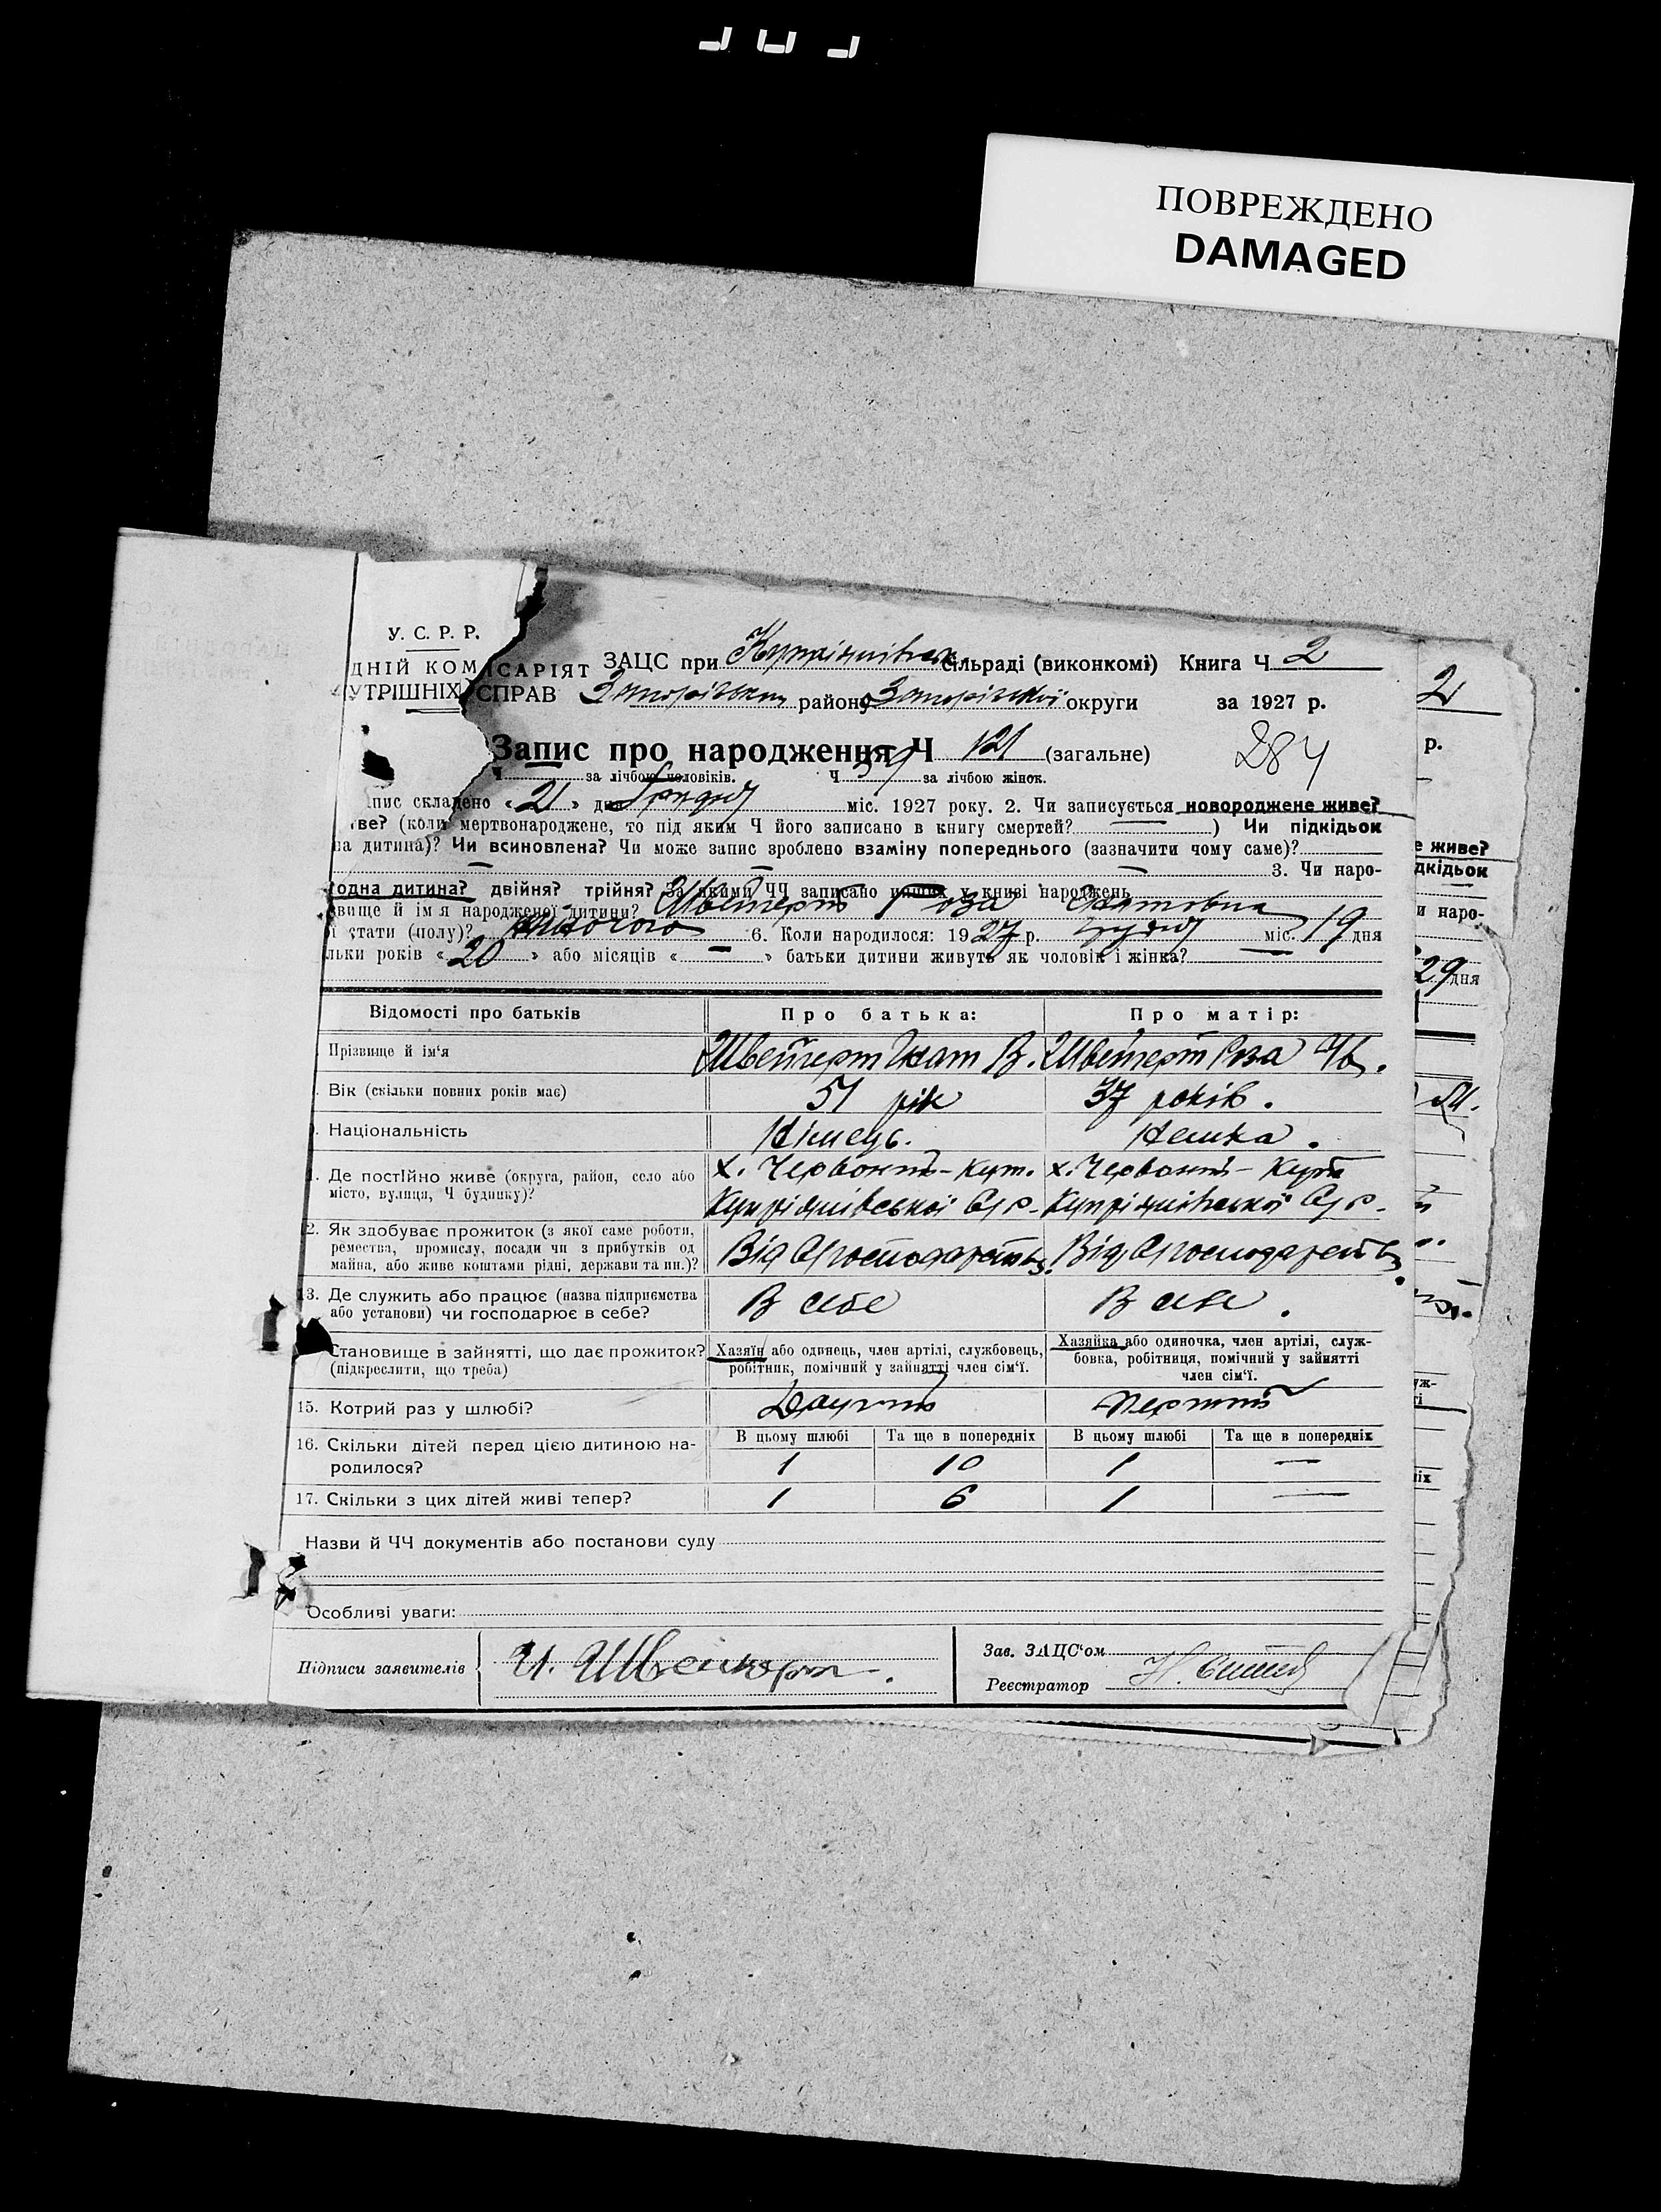 ПОВРЕЖДЕНО
DAMAGED
У. С. Р. Р.
ДНІЙ КОМІСАРІЯТ
УТРІШНІХ СПРАВ
ЗАЦС при Купріянівськ сільраді (виконкомі) Книга Ч 2
Запорізьким району Запорізької округи за 1927 р.
Запис про народження Ч 121 (загальне) 284
Ч за лічбою чоловіків. Ч 59 за лічбою жінок.
пис складено «21» дня Грудня міс. 1927 року. 2. Чи записується новороджене живе?
тве? (коли мертвонароджене, то під яким Ч його записано в книгу смертей? — ) Чи підкідьок
на дитина)? Чи всиновлена? Чи може запис зроблено взаміну попереднього (зазначити чому саме)?
— — — 3. Чи наро-
одна дитина? двійня? трійня? За якими ЧЧ записано инших у книзі народжень —
вище й ім'я народженої дитини? Швейгерт Роза Гнатовна
ї стати (полу)? жіночого 6. Коли народилося: 1927 р. Грудня міс. 19 дня
льки років «20» або місяців « — » батьки дитини живуть як чоловік і жінка? —
Відомості про батьків Про батька: Про матір:
Прізвище й ім'я Швейгерт Гнат В. Швейгерт Роза Ив.
Вік (скільки повних років має) 51 рік 37 років.
Національність Німець. Немка.
Де постійно живе (округа, район, село або х. Червоний-Кут. х. Червоний-Кут
місто, вулиця, Ч будинку)? Купріянівської С/р. Купріянівської С/р.
2. Як здобуває прожиток (з якої саме роботи,
ремества, промислу, посади чи з прибутків од
майна, або живе коштами рідні, держави та ин.)? Від С/господарства. Від С/господарства.
13. Де служить або працює (назва підприємства
або установи) чи господарює в себе? В себе В себе.
Становище в зайнятті, що дає прожиток? Хазяїн або одинець, член артілі, службовець, Хазяйка або одиночка, член артілі, служ-
(підкреслити, що треба) робітник, помічний у зайнятті член сім'ї. бовка, робітниця, помічний у зайнятті
член сім'ї.
15. Котрий раз у шлюбі? Другий Перший
16. Скільки дітей перед цією дитиною на- В цьому шлюбі Та ще в попередніх В цьому шлюбі Та ще в попередніх
родилося? 1 10 1 —
17. Скільки з цих дітей живі тепер? 1 6 1 —
Назви й ЧЧ документів або постанови суду
Особливі уваги:
Підписи заявителів И. Швейгерт. Зав. ЗАЦС'ом
Реєстратор
2
р.
е живе?
дкідьок
и наро-
29 дня
уж-
ті
іх